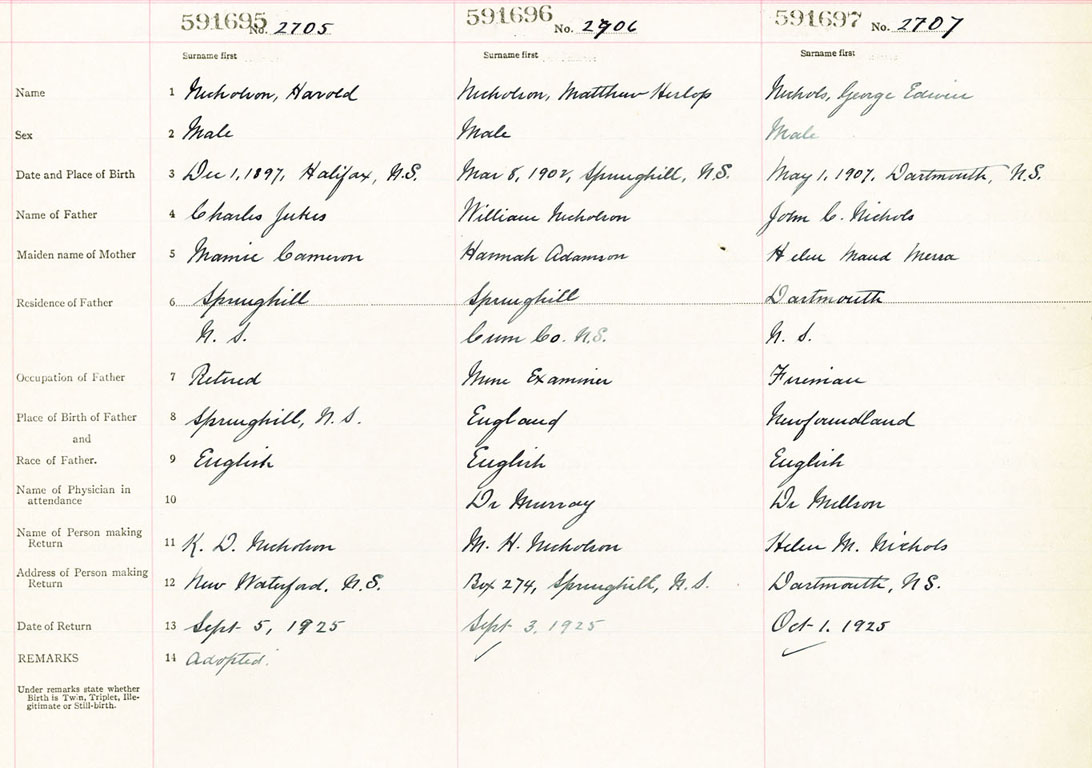 591695 No. 2705 591696 No. 2706 591697 No. 2707
Surname first Surname first Surname first
Name 1 Nicholson, Harold Nicholson, Matthew Heslop Nichols, George Edwin
Sex 2 Male Male Male
Date and Place of Birth 3 Dec 1, 1897, Halifax, N.S. Mar 8, 1902, Springhill, N.S. May 1, 1907, Dartmouth, N.S.
Name of Father 4 Charles Jukes William Nicholson John C. Nichols
Maiden name of Mother 5 Mamie Cameron Hannah Adamson Helen Maud
Residence of Father 6 Springhill Springhill Dartmouth
N. S. Cum Co. N.S. N. S.
Occupation of Father 7 Retired Mine Examiner Fireman
Place of Birth of Father 8 Springhill, N.S. England Newfoundland
and
Race of Father. 9 English English English
Name of Physician in
attendance 10 Dr Murray Dr
Name of Person making
Return 11 K. D. Nicholson M. H. Nicholson Helen M. Nichols
Address of Person making
Return 12 New Waterford, N.S. Box 274, Springhill, N.S. Dartmouth, N.S.
Date of Return 13 Sept 5, 1925 Sept 3, 1925 Oct 1. 1925
REMARKS 14 Adopted.
Under remarks state whether
Birth is Twin, Triplet, Ille-
gitimate or Still-birth.